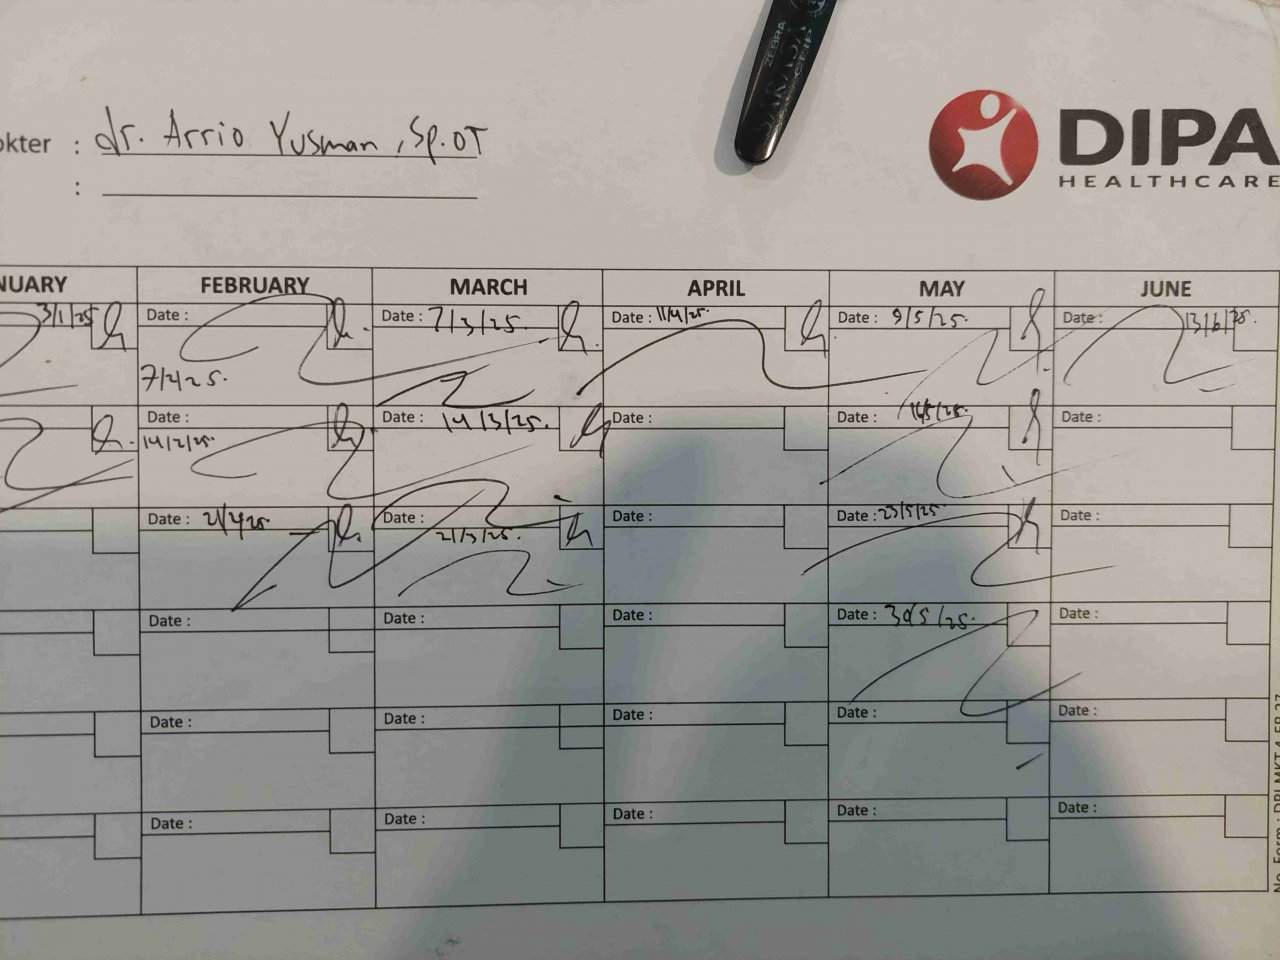 ZEBRA
SARASA CLIP
okter : dr. Arrio Yusman, Sp.OT
:
DIPA
HEALTHCARE
NUARY FEBRUARY MARCH APRIL MAY JUNE
3/1/25 Date : Date : 7/3/25. Date : 11/4/25. Date : 9/5/25. Date : 13/6/25.
7/2/25.
Date : Date : 14/3/25. Date : Date : 16/5/25. Date :
14/2/25.
Date : 21/2/25 Date : Date : Date : 23/5/25 Date :
21/3/25.
Date : Date : Date : Date : 30/5/25. Date :
Date : Date : Date : Date : Date :
Date : Date : Date : Date : Date :
No. Form : DPI-MKT-4-FR-27